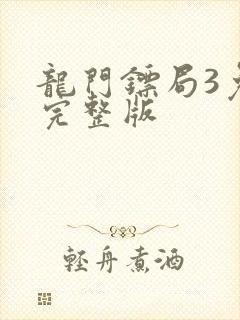 龍門鏢局3
完整版
輕舟煮酒